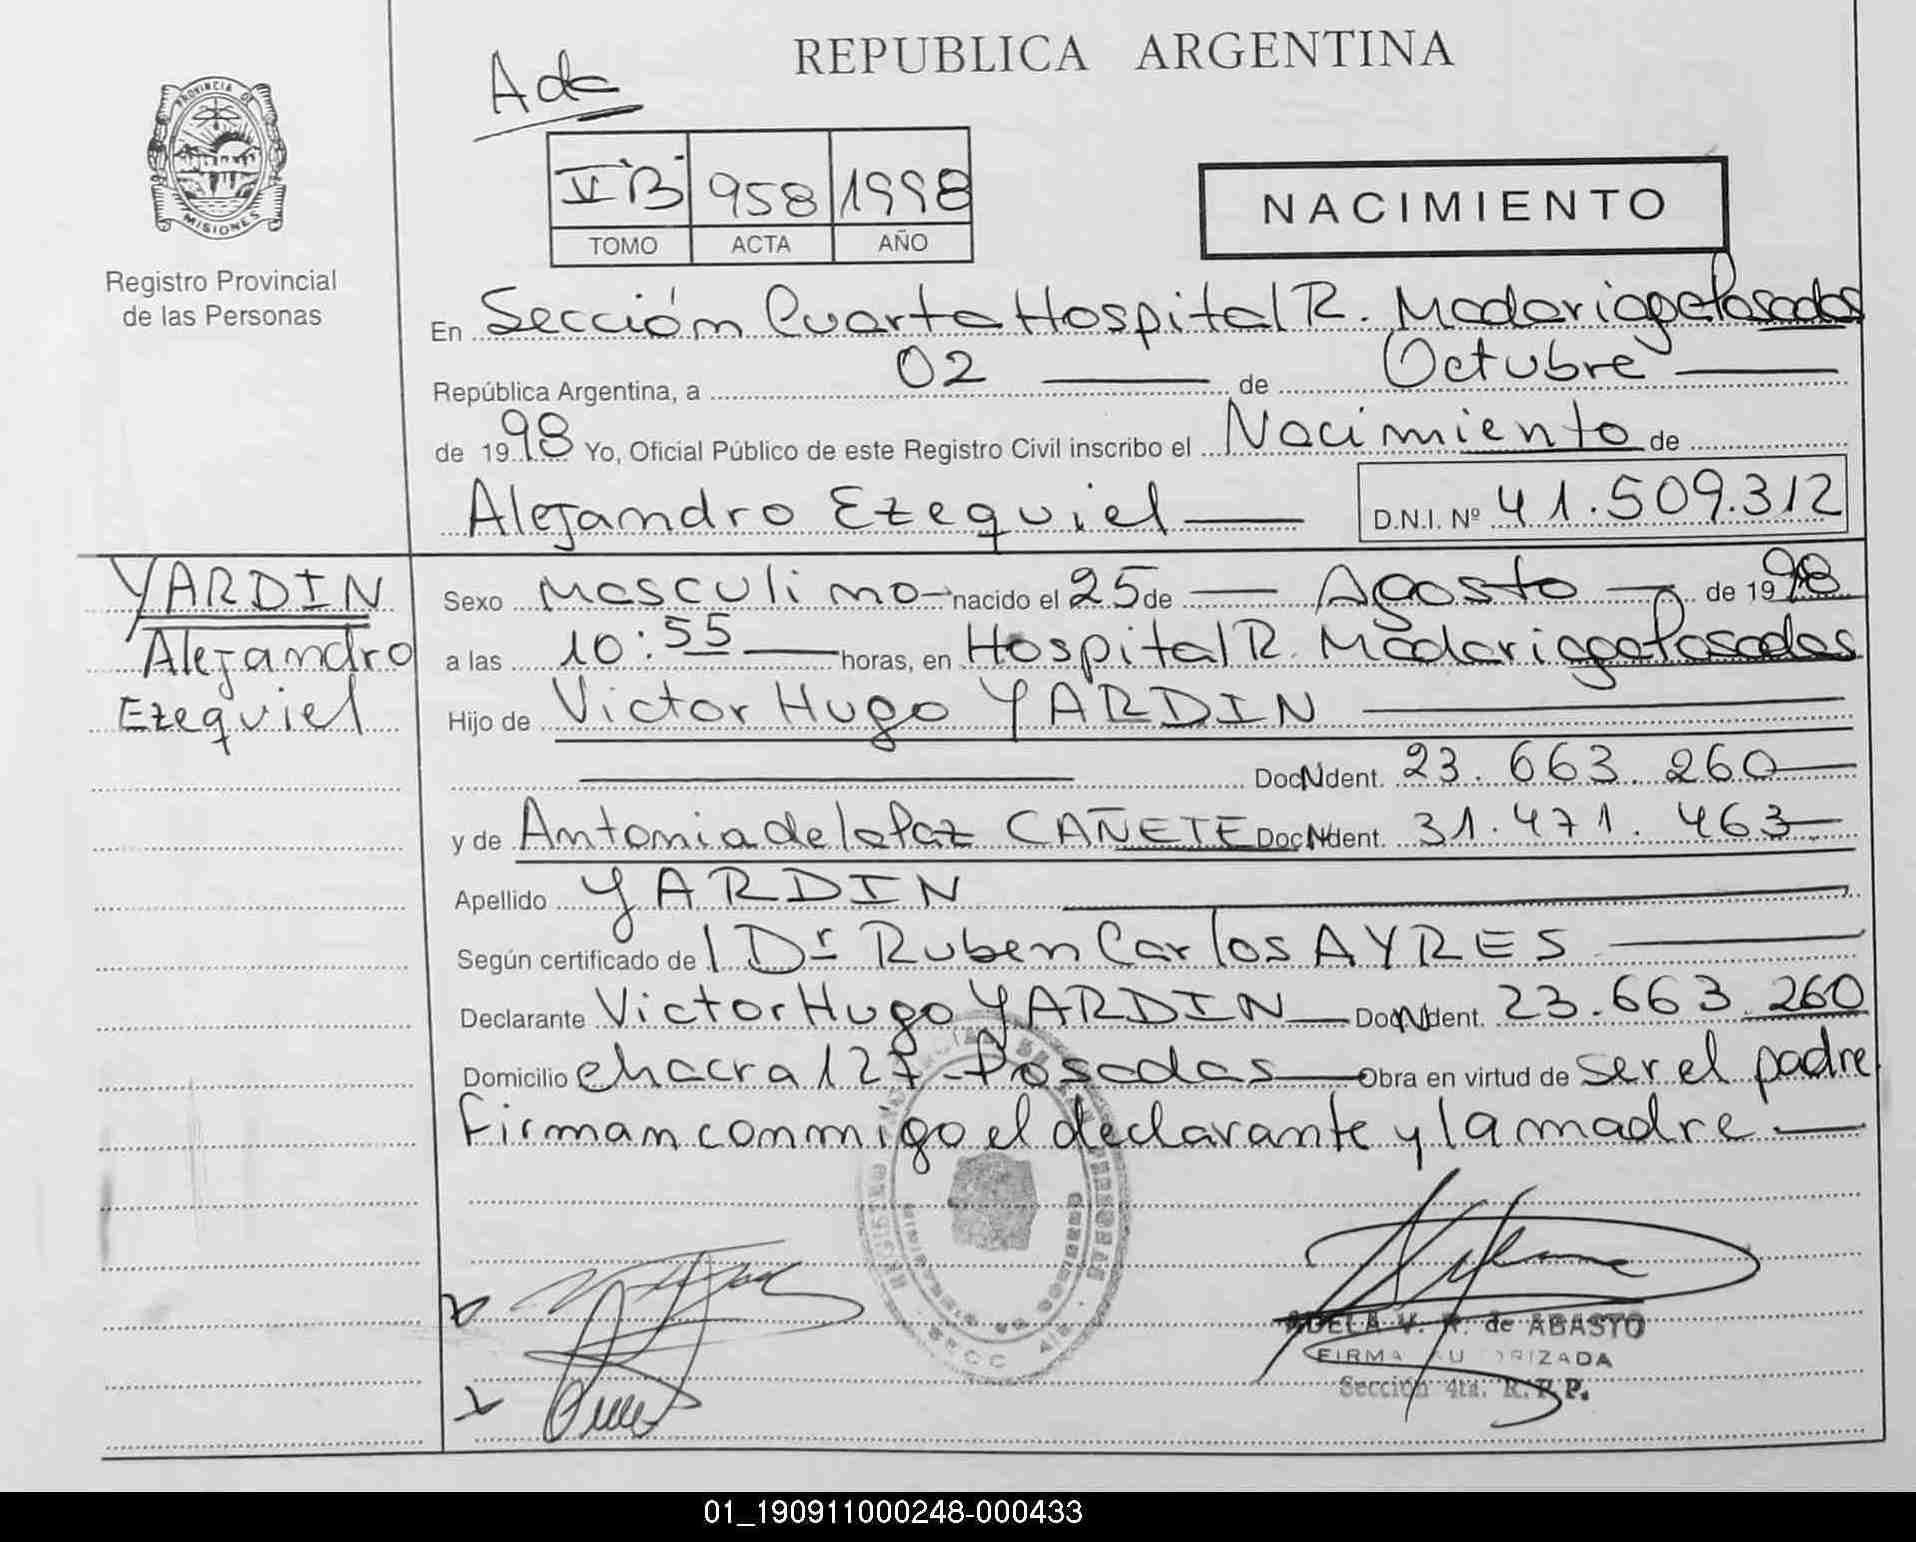 REPUBLICA ARGENTINA
Ada
PROVINCIA DE
MISIONES
Registro Provincial
de las Personas
V "B" 958 1998
TOMO ACTA AÑO
NACIMIENTO
En Sección Cuarta Hospital R. Madariaga Posadas
República Argentina, a 02 de Octubre
de 1998 Yo, Oficial Público de este Registro Civil inscribo el Nacimiento de
Alejandro Ezequiel D.N.I. Nº 41.509.312
YARDIN
Alejandro
Ezequiel
Sexo Masculino nacido el 25 de Agosto de 1998
a las 10:55 horas, en Hospital R. Madariaga Posadas
Hijo de Victor Hugo YARDIN
Doc. Ident. 23.663.260
y de Antonia de la Paz CAÑETE Doc. Ident. 31.471.463
Apellido YARDIN
Según certificado de l Dr Ruben Carlos AYRES
Declarante Victor Hugo YARDIN Doc. Ident. 23.663.260
Domicilio chacra 127 - Posadas Obra en virtud de ser el padre
Firman conmigo el declarante y la madre
ADELA V. de ABASTO
FIRMA AUTORIZADA
Sección 4ta. R.P.P.
01_190911000248-000433